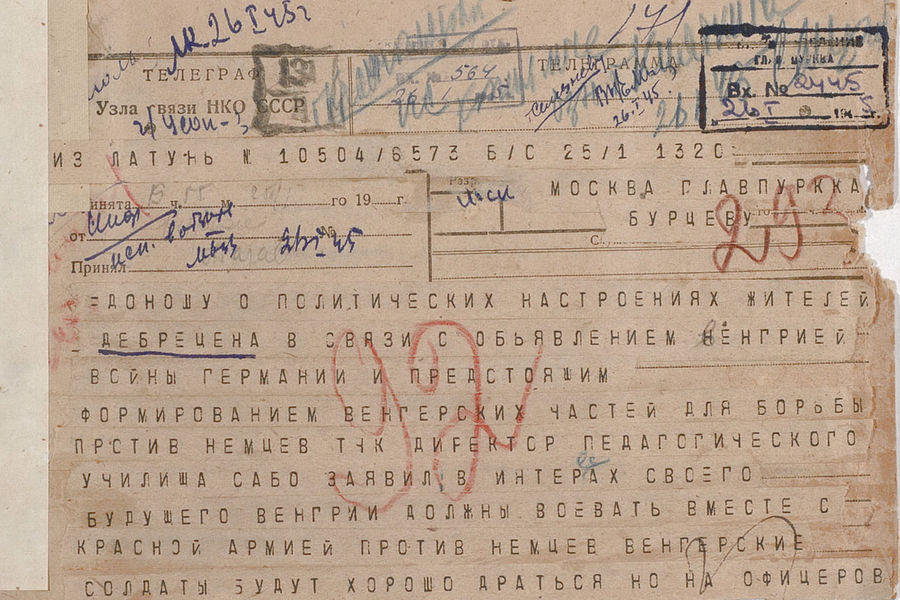 26 I 45г
ТЕЛЕГРАФ
Узла связи НКО СССР
ТЕЛЕГРАММА
564
26.I.45.
ГЛ. П УРККА
Вх. № 2445
26 I 194 г.
ИЗ ЛАТУНЬ № 10504/6573 Б/С 25/1 1320
Принята ч. м. го 19 г.
МОСКВА ГЛАВПУРККА
БУРЦЕВУ
293
от №
26 I 45
Принял
=ДОНОШУ О ПОЛИТИЧЕСКИХ НАСТРОЕНИЯХ ЖИТЕЛЕЙ
ДЕБРЕЦЕНА В СВЯЗИ С ОБЬЯВЛЕНИЕМ ВЕНГРИЕЙ
ВОЙНЫ ГЕРМАНИИ И ПРЕДСТОЯШИМ
ФОРМИРОВАНИЕМ ВЕНГЕРСКИХ ЧАСТЕЙ ДЛЯ БОРЬБЫ
ПРОТИВ НЕМЦЕВ ТЧК ДИРЕКТОР ПЕДАГОГИЧЕСКОГО
УЧИЛИША САБО ЗАЯВИЛ В ИНТЕРАХ СВОЕГО
БУДУЩЕГО ВЕНГРИИ ДОЛЖНЫ ВОЕВАТЬ ВМЕСТЕ С
КРАСНОЙ АРМИЕЙ ПРОТИВ НЕМЦЕВ ВЕНГЕРСКИЕ
СОЛДАТЫ БУДУТ ХОРОШО ДРАТЬСЯ НО НА ОФИЦЕРОВ